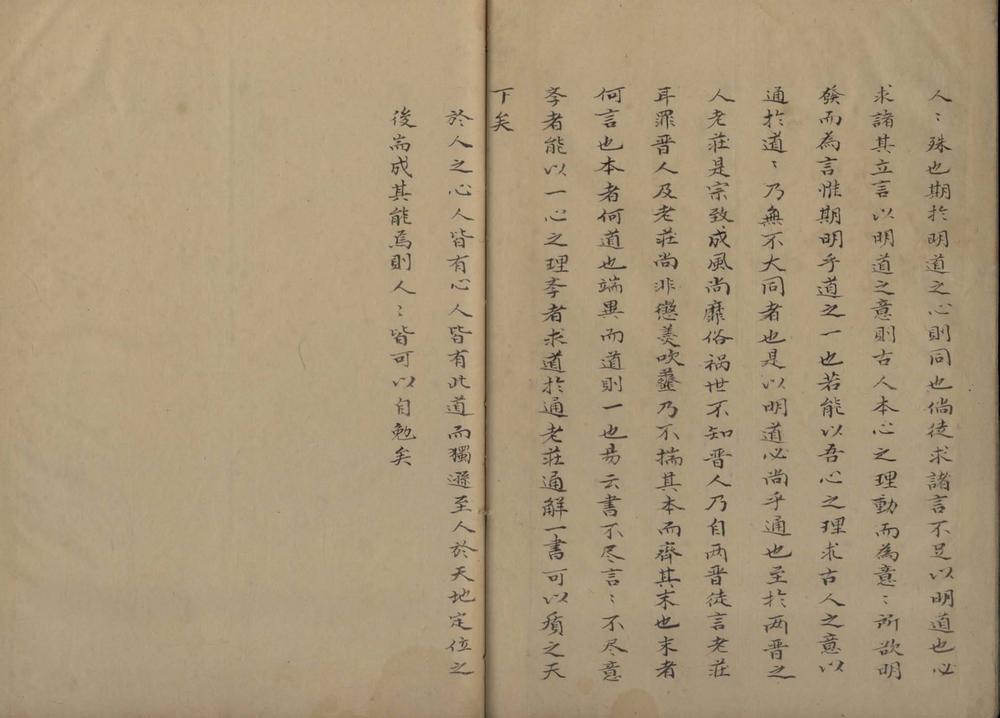 人〻殊也期扵明道之心則同也倘徒求諸言不足以明道也必
求諸其立言以明道之意則古人本心之理動而為意〻所欲明
發而為言惟期明乎道之一也若能以吾心之理求古人之意以
通扵道〻乃無不大同者也是以明道必尚乎通也至扵两晋之
人老莊是宗致成風尚靡俗禍世不知晋人乃自两晋徒言老莊
耳罪晋人及老莊尚非懲羮吹虀乃不揣其本而齊其末也末者
何言也本者何道也端異而道則一也易云書不尽言〻不尽意
斈者能以一心之理斈者求道扵通老莊通解一書可以質之天
下矣
於人之心人皆有心人皆有此道而獨遜至人於天地定位之
後耑成其能焉則人〻皆可以自勉矣